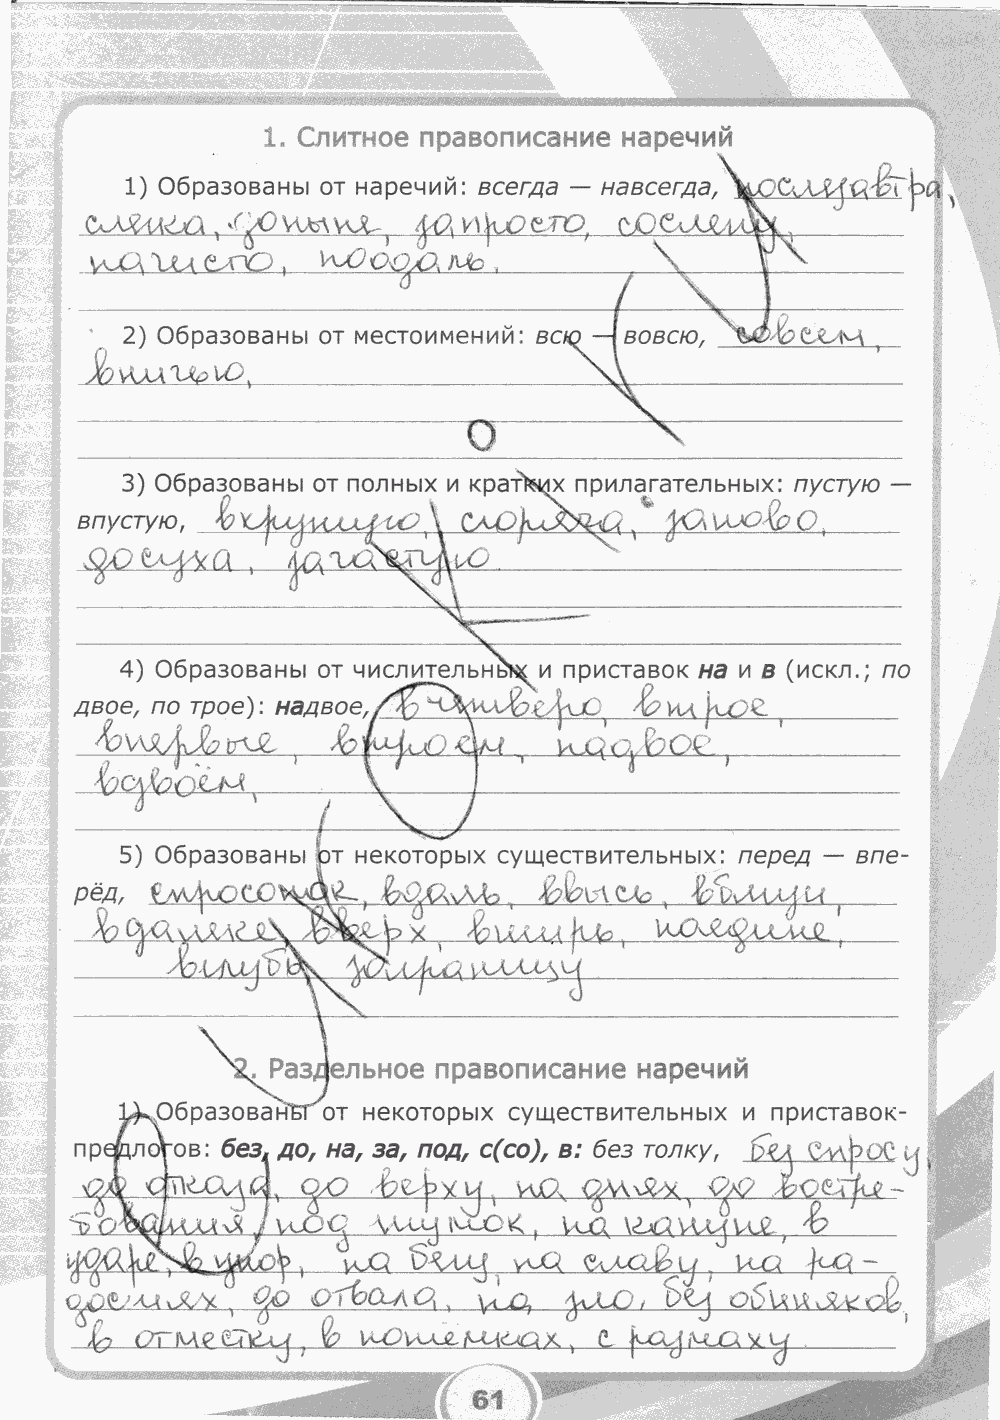 1. Слитное правописание наречий
1) Образованы от наречий: всегда — навсегда, послезавтра,
слегка, доныне, запросто, сослепу,
начисто, поодаль.
2) Образованы от местоимений: всю — вовсю, совсем,
вничью,
3) Образованы от полных и кратких прилагательных: пустую —
впустую, вкрутую, сгоряча, заново,
досуха, зачастую.
4) Образованы от числительных и приставок на и в (искл.; по
двое, по трое): надвое, вчетверо, втрое,
впервые, втроем, надвое,
вдвоём,
5) Образованы от некоторых существительных: перед — впе-
рёд, спросонок, вдаль, ввысь, вблизи,
вдалеке, вверх, вширь, наедине,
вглубь заграницу
2. Раздельное правописание наречий
1) Образованы от некоторых существительных и приставок-
предлогов: без, до, на, за, под, с(со), в: без толку, без спросу,
до отказа, до верху, на днях, до востре-
бования, под шумок, на кануне, в
ударе, в упор, на бегу, на славу, на ра-
достях, до отвала, на зло, без обиняков,
в отместку, в потёмках, с размаху
61